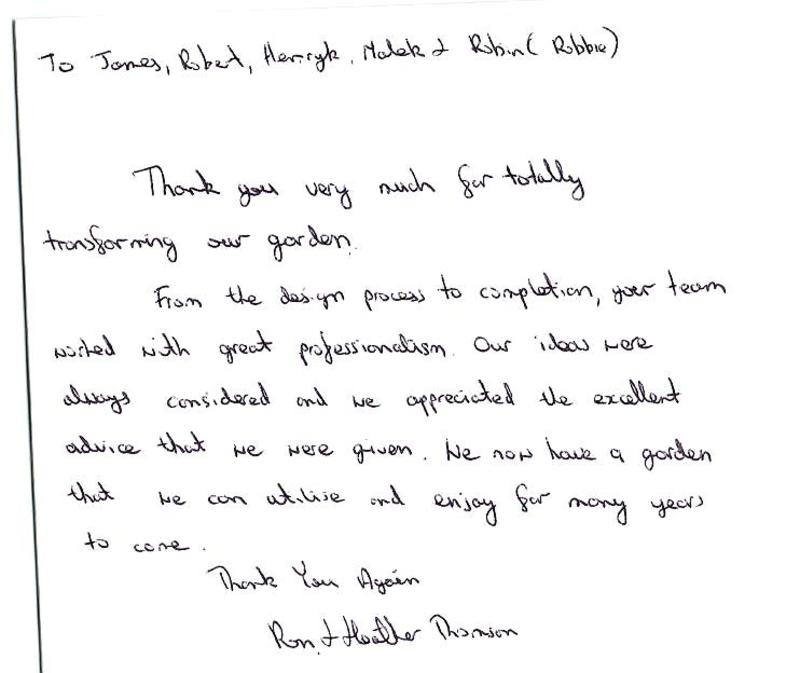 To James, Robert, Henryk, Malek & Robin (Robbie)
Thank you very much for totally
transforming our garden.
From the design process to completion, your team
worked with great professionalism. Our ideas were
always considered and we appreciated the excellent
advice that we were given. We now have a garden
that we can utilise and enjoy for many years
to come.
Thank You Again
Ron & Heather Thomson